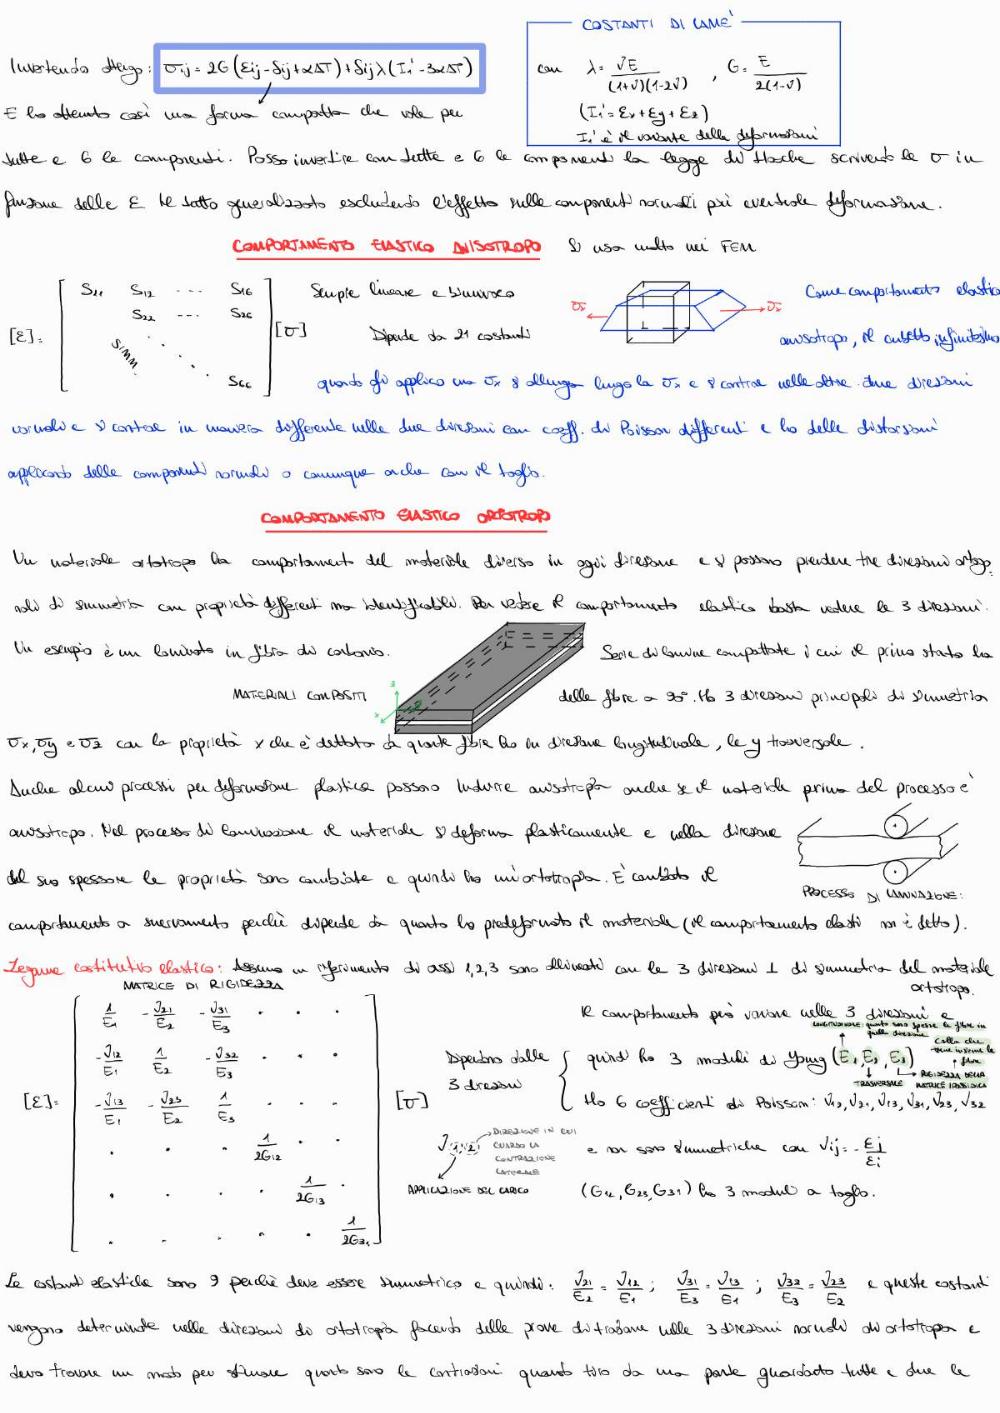 COSTANTI DI LAMÉ
Invertendo ottengo: σij = 2G (εij - δij + αΔT) + δij λ (I₁' - 3αΔT)
con λ = νE / (1+ν)(1-2ν) , G = E / 2(1-ν)
(I₁' = εx + εy + εz)
I₁' è il variante delle deformazioni
E ho ottenuto così una forma compatta che vale per
tutte e 6 le componenti. Posso invertire con tutte e 6 le componenti la legge di Hooke scrivendo le σ in
funzione delle ε. Ho fatto generalizzato escludendo l'effetto sulle componenti normali più eventuale deformazione.
COMPORTAMENTO ELASTICO ANISOTROPO Si usa molto nei FEM
[ε] = [ S11 S12 --- S16
S22 --- S26
SIMM.
S66 ] [σ]
Sempre lineare e biunivoco
Dipende da 21 costanti
σx σx
Come comportamento elastico
anisotropo, il cubetto infinitesimo
quando gli applico una σx si allunga lungo la σx e si contrae nelle altre due direzioni
normali e si contrae in maniera differente nelle due direzioni con coeff. di Poisson differenti e ho delle distorsioni
applicando delle componenti normali o comunque anche con il taglio.
COMPORTAMENTO ELASTICO ORTOTROPO
Un materiale ortotropo ha comportamenti del materiale diverso in ogni direzione e si possono prendere tre direzioni ortogo
nali di simmetria con proprietà differenti ma identificabili. Per vedere il comportamento elastico basta vedere le 3 direzioni.
Un esempio è un laminato in fibra di carbonio.
Serie di lamine compattate i cui il primo strato ha
MATERIALI COMPOSITI
z
x
delle fibre a 90°. Ho 3 direzioni principali di simmetria
σx, σy e σz con la proprietà x che è dettata da quante fibre ho in direzione longitudinale, le y trasversale.
Anche alcuni processi per deformazione plastica possono indurre anisotropia anche se il materiale prima del processo è
anisotropo. Nel processo di laminazione il materiale si deforma plasticamente e nella direzione
del suo spessore le proprietà sono cambiate e quindi ho un'ortotropia. È cambiato il
PROCESSO DI LAMINAZIONE:
comportamento a snervamento perchè dipende da quanto ho predeformato il materiale (il comportamento elasti non è detto).
Legame costitutivo elastico: Assumo un riferimento di assi 1,2,3 sono allineati con le 3 direzioni ⊥ di simmetria del materiale
ortotropo.
MATRICE DI RIGIDEZZA
[ε] = [ 1/E1 -ν21/E2 -ν31/E3 · · ·
-ν12/E1 1/E2 -ν32/E3 · · ·
-ν13/E1 -ν23/E2 1/E3 · · ·
· · · 1/2G12 · ·
· · · · 1/2G13 ·
· · · · · 1/2G31 ] [σ]
Il comportamento può variare nelle 3 direzioni e
LONGITUDINALE: quanto sono spesse le fibre in
quella direzione
Colla che
tiene insieme le
fibre
Dipendono dalle
3 direzioni
quindi ho 3 moduli di Young (E1, E2, E3)
TRASVERSALE
RIGIDEZZA DELLA
MATRICE
Ho 6 coefficienti di Poisson: ν12, ν21, ν13, ν31, ν23, ν32
ν(1,2)
DIREZIONE IN CUI
GUARDO LA
CONTRAZIONE
LATERALE
APPLICAZIONE DEL CARICO
e non sono simmetriche con νij = - εj/εi
(G12, G23, G31) ho 3 moduli a taglio.
Le costanti elastiche sono 9 perchè deve essere simmetrico e quindi: ν21/E2 = ν12/E1 ; ν31/E3 = ν13/E1 ; ν32/E3 = ν23/E2 e queste costanti
vengono determinate nelle direzioni di ortotropia facendo delle prove di trazione nelle 3 direzioni normali di ortotropia e
devo trovare un modo per stimare quanto sono le contrazioni quando tiro da una parte guardato tutte e due le